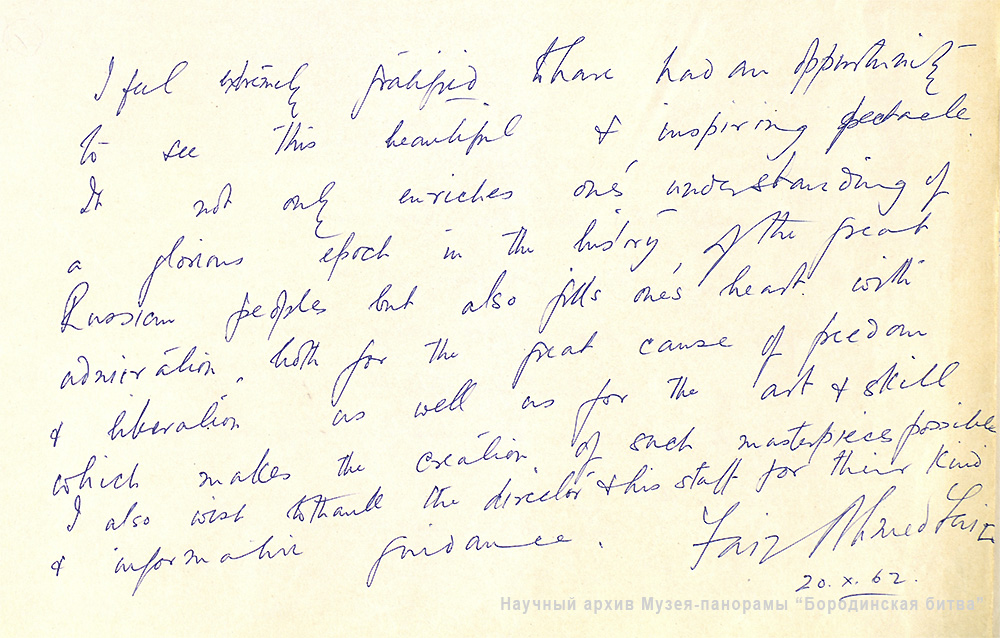 I feel extremely gratified to have had an opportunity
to see this beautiful & inspiring spectacle.
It not only enriches one's understanding of
a glorious epoch in the history of the great
Russian peoples but also fills one's heart with
admiration, both for the great cause of freedom
& liberation as well as for the art & skill
which makes the creation of such masterpieces possible
I also wish to thank the director & his staff for their kind
& informative guidance.
Faiz Ahmed Faiz
20.X.62.
Научный архив Музея-панорамы "Бородинская битва"